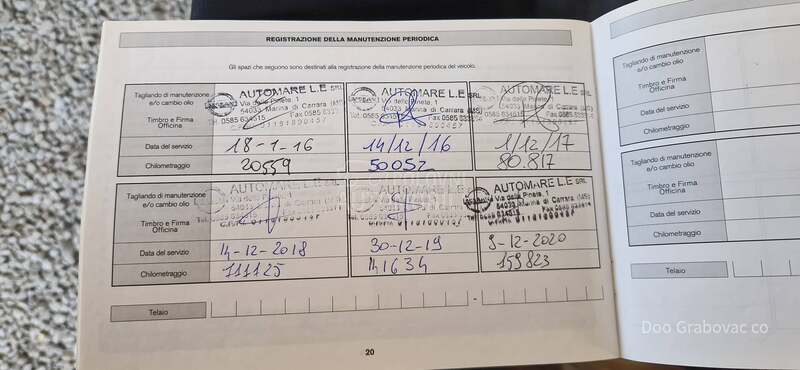 REGISTRAZIONE DELLA MANUTENZIONE PERIODICA
Gli spazi che seguono sono destinati alla registrazione della manutenzione periodica del veicolo.
Tagliando di manutenzione
e/o cambio olio
Timbro e Firma
Officina
AUTOMARE L.E. SRL
Via delle Pinete, 1
54033 Marina di Carrara (MS)
Tel. 0585 634515
AUTOMARE L.E SRL
Via delle Pinete, 1
54033 Marina di Carrara
Tel. 0585 634515
AUTOMARE L.E SRL
Via delle Pinete, 1
54033 Marina di Carrara (MS)
Data del servizio
18-1-16
14/12/16
1/12/17
Chilometraggio
20559
50052
80.817
Tagliando di manutenzione
e/o cambio olio
Timbro e Firma
Officina
AUTOMARE L.E SRL
Via delle Pinete, 1
54033 Marina di Carrara
AUTOMARE L.E
Via delle Pinete, 1
54033 Marina di Carrara
AUTOMARE L.E SRL
Via delle Pinete, 1
54033 Marina di Carrara (MS)
Data del servizio
14-12-2018
30-12-19
9-12-2020
Chilometraggio
111125
141634
159823
Telaio
-
20
Tagliando di manutenzione
e/o cambio olio
Timbro e Firma
Officina
Data del servizio
Chilometraggio
Tagliando di manutenzione
e/o cambio olio
Timbro e Firma
Officina
Data del servizio
Chilometraggio
Telaio
Doo Grabovac co